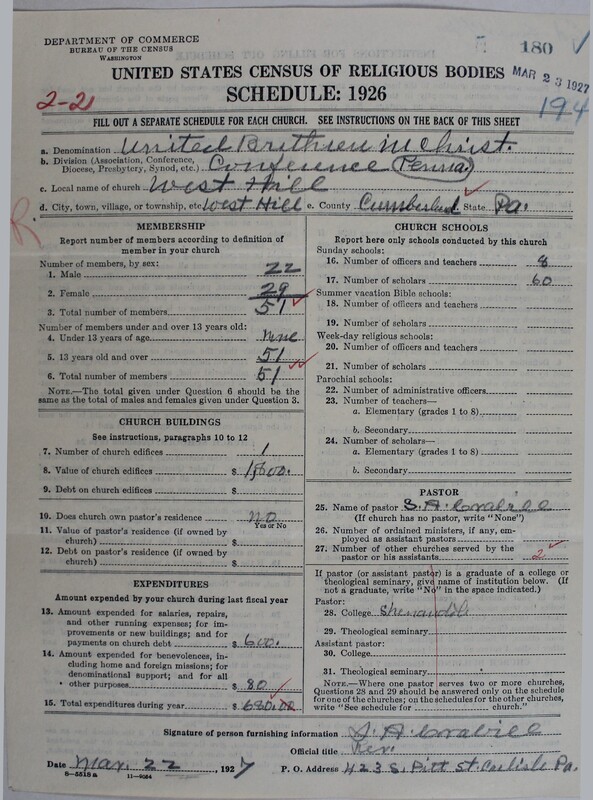 DEPARTMENT OF COMMERCE
BUREAU OF THE CENSUS
WASHINGTON
180
UNITED STATES CENSUS OF RELIGIOUS BODIES
MAR 23 1927
SCHEDULE: 1926
2-21
194
FILL OUT A SEPARATE SCHEDULE FOR EACH CHURCH. SEE INSTRUCTIONS ON THE BACK OF THIS SHEET
a. Denomination United Brethren in Christ.
b. Division (Association, Conference, Diocese, Presbytery, Synod, etc.) Conference (Penna.)
c. Local name of church West Hill
d. City, town, village, or township, etc. West Hill e. County Cumberland State Pa.
R
MEMBERSHIP
Report number of members according to definition of member in your church
Number of members, by sex:
1. Male 22
2. Female 29
3. Total number of members 51
Number of members under and over 13 years old:
4. Under 13 years of age none
5. 13 years old and over 51
6. Total number of members 51
NOTE.—The total given under Question 6 should be the same as the total of males and females given under Question 3.
CHURCH BUILDINGS
See instructions, paragraphs 10 to 12
7. Number of church edifices 1
8. Value of church edifices $
9. Debt on church edifices $
10. Does church own pastor's residence No
Yes or No
11. Value of pastor's residence (if owned by church) $
12. Debt on pastor's residence (if owned by church) $
EXPENDITURES
Amount expended by your church during last fiscal year
13. Amount expended for salaries, repairs, and other running expenses; for improvements or new buildings; and for payments on church debt $ 600.
14. Amount expended for benevolences, including home and foreign missions; for denominational support; and for all other purposes $ 80
15. Total expenditures during year $ 680.00
CHURCH SCHOOLS
Report here only schools conducted by this church
Sunday schools:
16. Number of officers and teachers 8
17. Number of scholars 60
Summer vacation Bible schools:
18. Number of officers and teachers
19. Number of scholars
Week-day religious schools:
20. Number of officers and teachers
21. Number of scholars
Parochial schools:
22. Number of administrative officers
23. Number of teachers—
a. Elementary (grades 1 to 8)
b. Secondary
24. Number of scholars—
a. Elementary (grades 1 to 8)
b. Secondary
PASTOR
25. Name of pastor S. A. Crabill
(If church has no pastor, write "None")
26. Number of ordained ministers, if any, employed as assistant pastors
27. Number of other churches served by the pastor or his assistants 2
If pastor (or assistant pastor) is a graduate of a college or theological seminary, give name of institution below. (If not a graduate, write "No" in the space indicated.)
Pastor:
28. College Shenandoah
29. Theological seminary
Assistant pastor:
30. College
31. Theological seminary
NOTE.—Where one pastor serves two or more churches, Questions 28 and 29 should be answered only on the schedule for one of the churches; on the schedules for the other churches, write "See schedule for church."
Signature of person furnishing information S. A. Crabill
Official title Rev.
Date Mar. 22, 1927 P. O. Address 423 S. Pitt St. Carlisle Pa.